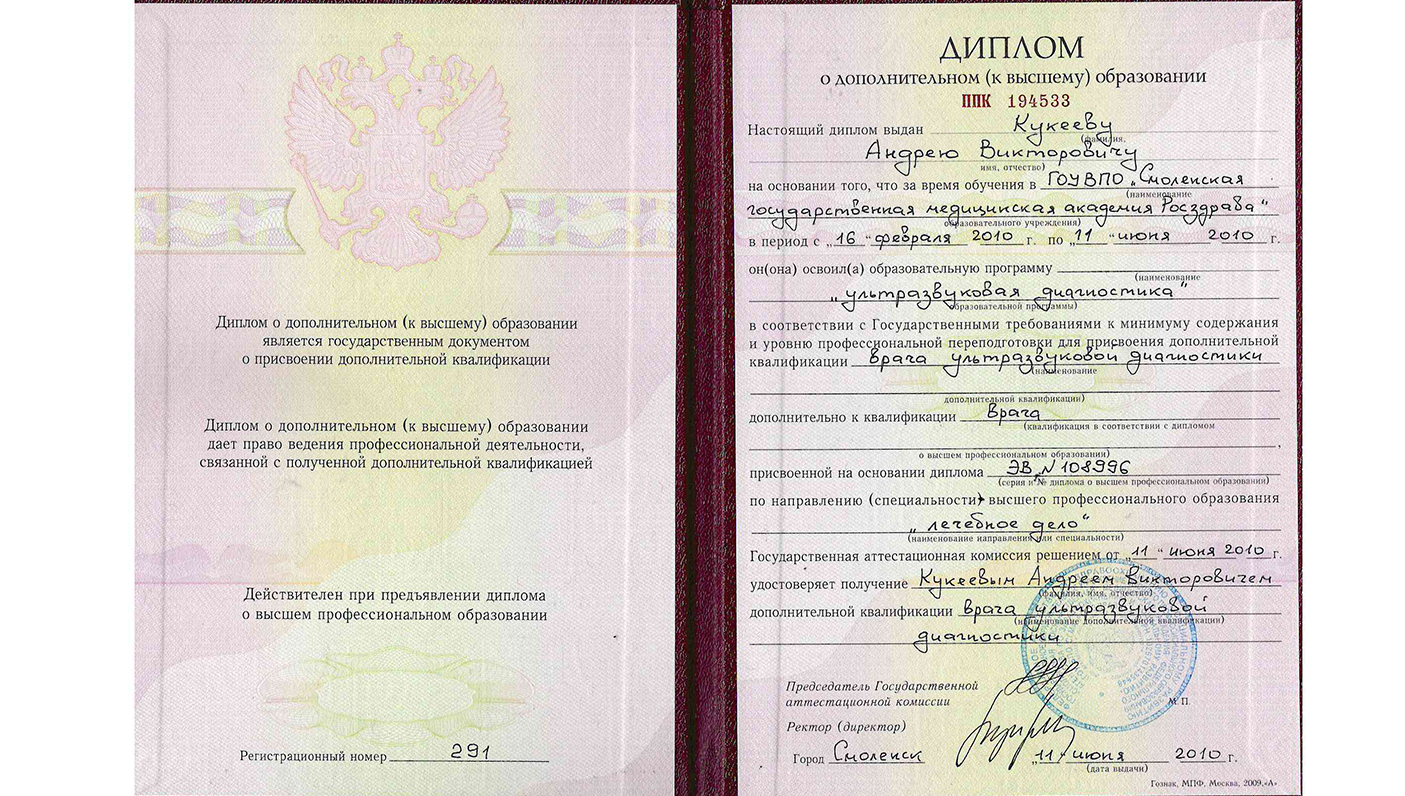 Диплом о дополнительном (к высшему) образовании
является государственным документом
о присвоении дополнительной квалификации
Диплом о дополнительном (к высшему) образовании
дает право ведения профессиональной деятельности,
связанной с полученной дополнительной квалификацией
Действителен при предъявлении диплома
о высшем профессиональном образовании
Регистрационный номер 291
ДИПЛОМ
о дополнительном (к высшему) образовании
ППК 194533
Настоящий диплом выдан Кукееву
(фамилия,
Андрею Викторовичу
имя, отчество)
на основании того, что за время обучения в ГОУВПО „Смоленская
(наименование
государственная медицинская академия Росздрава"
образовательного учреждения)
в период с „16" февраля 2010 г. по „11" июня 2010 г.
он(она) освоил(а) образовательную программу
(наименование
„ультразвуковая диагностика"
образовательной программы)
в соответствии с Государственными требованиями к минимуму содержания
и уровню профессиональной переподготовки для присвоения дополнительной
квалификации врача ультразвуковой диагностики
(наименование
дополнительной квалификации)
дополнительно к квалификации врача
(квалификация в соответствии с дипломом
о высшем профессиональном образовании)
присвоенной на основании диплома ЭВ N 108996
(серия и № диплома о высшем профессиональном образовании)
по направлению (специальности) высшего профессионального образования
„лечебное дело"
(наименование направления или специальности)
Государственная аттестационная комиссия решением от „11" июня 2010 г.
удостоверяет получение Кукеевым Андреем Викторовичем
(фамилия, имя, отчество)
дополнительной квалификации врача ультразвуковой
(наименование дополнительной квалификации)
диагностики
Председатель Государственной
аттестационной комиссии
М. П.
Ректор (директор)
Город Смоленск „11" июня 2010 г.
(дата выдачи)
Гознак, МПФ, Москва, 2009, «А»